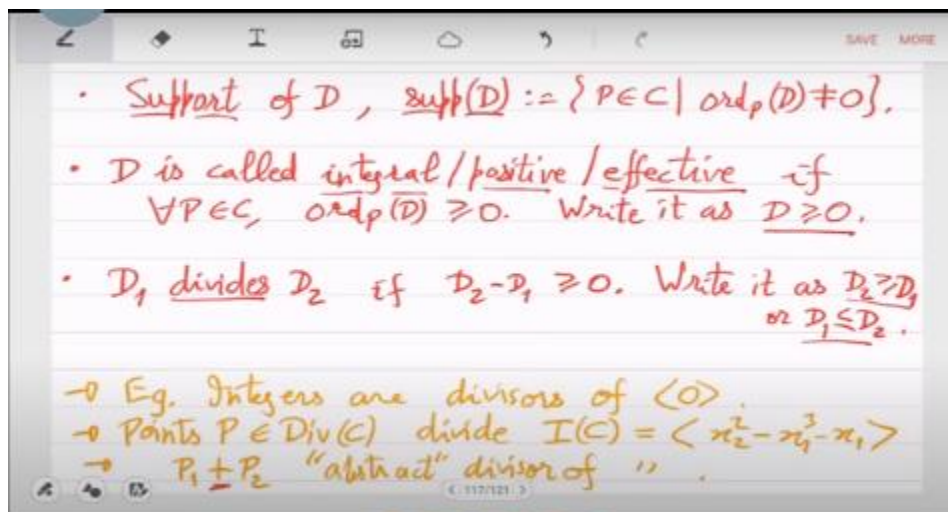 SAVE MORE
• Support of D, supp(D) := {P∈C | ord_P(D) ≠ 0}.
• D is called integral/positive/effective if
∀P∈C, ord_P(D) ≥ 0. Write it as D ≥ 0.
• D₁ divides D₂ if D₂-D₁ ≥ 0. Write it as D₂ ≥ D₁
or D₁ ≤ D₂.
→ Eg. Integers are divisors of <0>.
→ Points P ∈ Div(C) divide I(C) = < x₂² - x₁³ - x₁ >
→ P₁ ± P₂ "abstract" divisor of " .
< 117/121 >